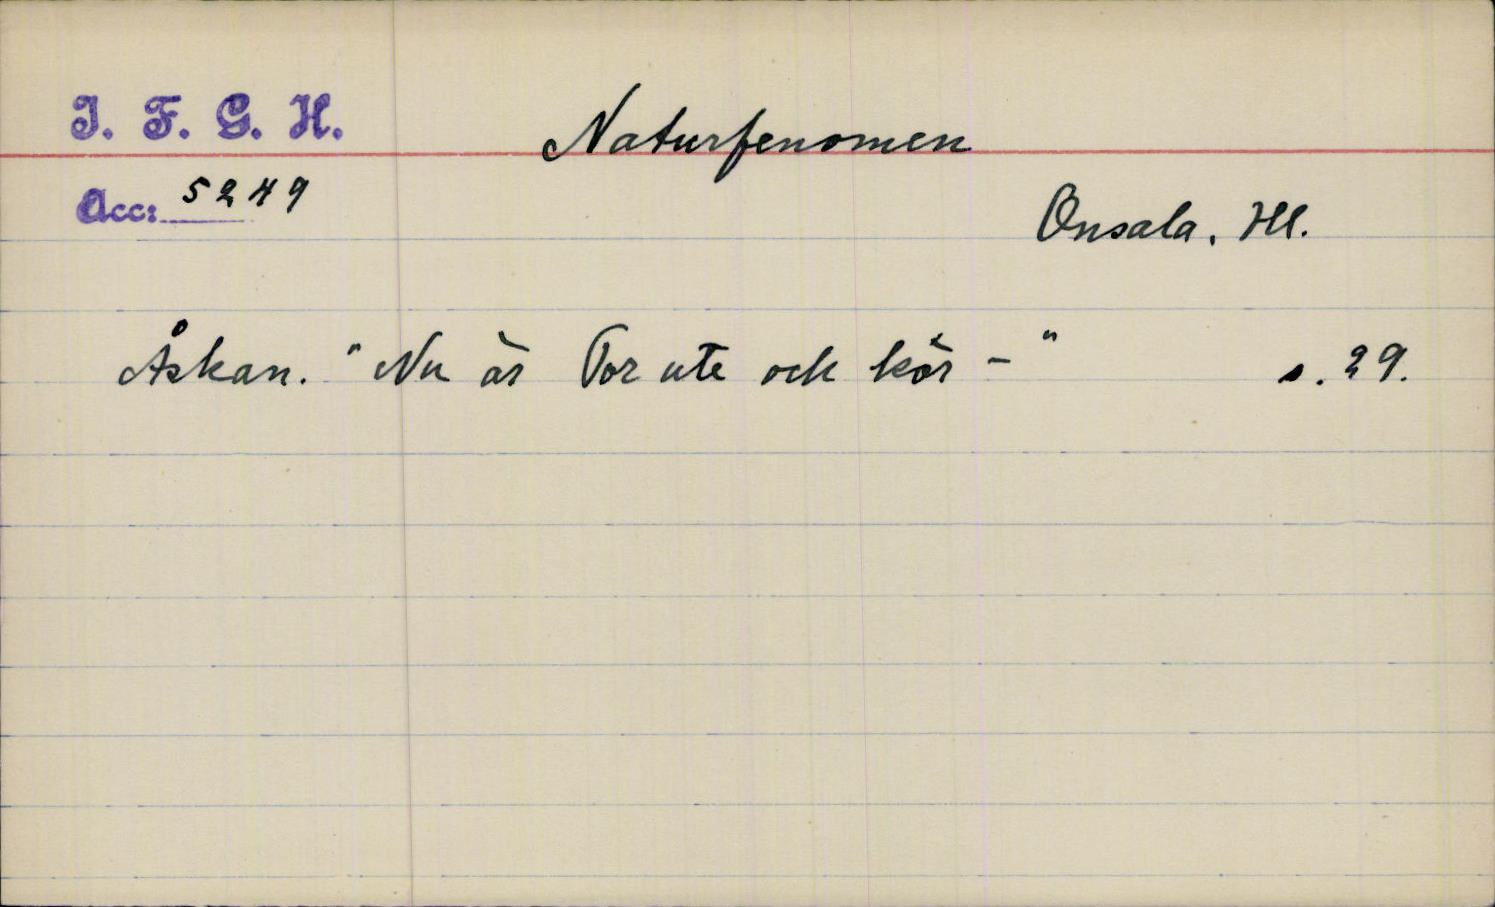 I. F. G. H.
Naturfenomen
Acc: 5249
Onsala. Hl.
Åskan. "Nu är Tor ute och kör - " s. 29.